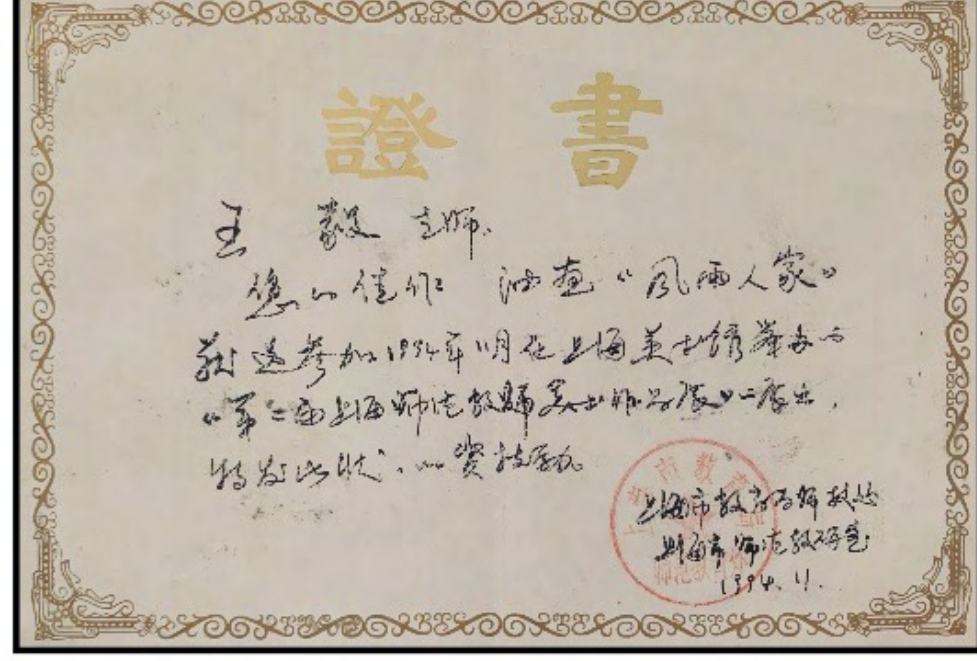 證書
王 毅 老师.
您的佳作 油画“風雨人家”
获选参加1994年11月在上海美术馆举办的
“第二届上海师范教师美术作品展”展出,
特发此状,以资鼓励
上海市教育局师教处
上海市师范教研室
1994.11.